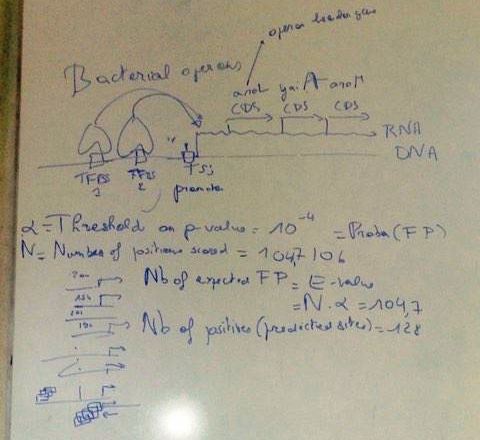 operon leader gene
Bacterial operons
aroL yaiA aroM
CDS CDS CDS
RNA
DNA
TFBS 1 TFBS 2 TSS
promoter
α = Threshold on p-value = 10⁻⁴ = Proba(FP)
N = Number of positions scored = 1047106
Nb of expected FP = E-value
= N·α = 104,7
Nb of positives (predicted sites) = 128